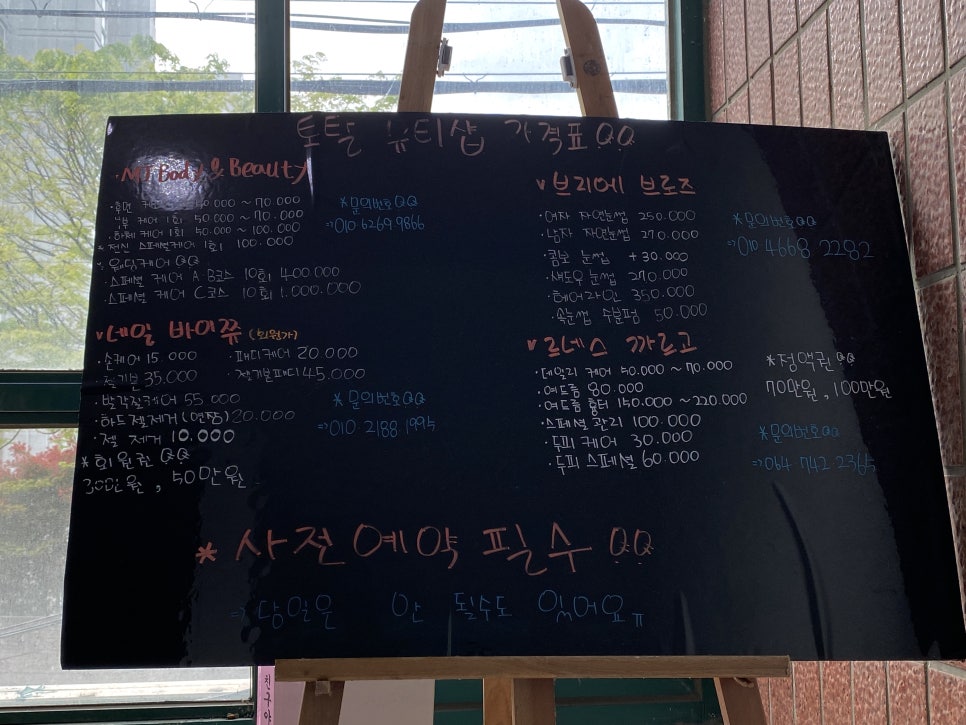 토탈 뷰티샵 가격표 QQ
· MJ Body & Beauty
· 후면 케어 ~ 70.000
· 복부 케어 1회 50.000 ~ 70.000
· 하체 케어 1회 50.000 ~ 100.000
· 전신 스페셜케어 1회 100.000
· 웨딩케어 QQ
· 스페셜 케어 A.B코스 10회 400.000
· 스페셜 케어 C코스 10회 1.000.000
* 문의번호QQ
⇒ 010.6269.9866
v 네일 바이쮸 (회원가)
· 손케어 15.000
· 패디케어 20.000
· 젤기본 35.000
· 젤기본패디 45.000
· 발각질케어 55.000
· 하드젤제거 (연장) 20.000
· 젤 제거 10.000
* 회원권 QQ
30만원, 50만원
* 문의번호QQ
⇒ 010.2188.1995
v 브리에 브로즈
· 여자 자연눈썹 250.000
· 남자 자연눈썹 270.000
· 콤보 눈썹 + 30.000
· 섀도우 눈썹 270.000
· 헤어라인 350.000
· 속눈썹 수분펌 50.000
* 문의번호QQ
⇒ 010.4668.2282
v 르네스 까르고
· 데일리 케어 50.000 ~ 70.000
· 여드름 80.000
· 여드름 흉터 150.000 ~ 220.000
· 스페셜 관리 100.000
· 두피 케어 30.000
· 두피 스페셜 60.000
* 정액권 QQ
70만원, 100만원
* 문의번호QQ
⇒ 064.742.2365
* 사전예약 필수 QQ
⇒ 당일은 안 될수도 있어요ㅠ
친구야